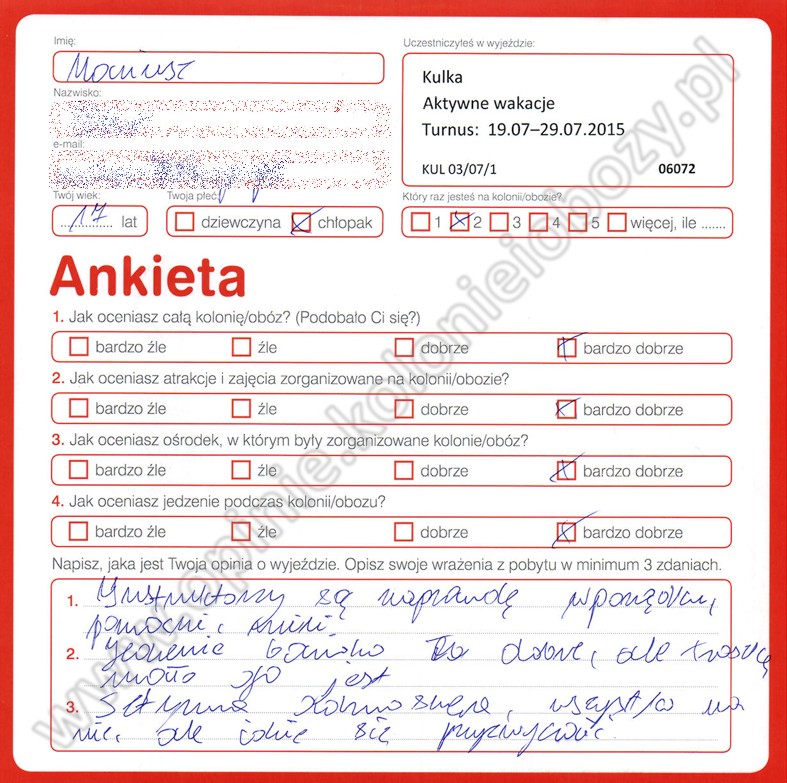 Imię:
Mariusz
Nazwisko:
e-mail:
Twój wiek:
17 lat
Twoja płeć
dziewczyna chłopak
Uczestniczyłeś w wyjeździe:
Kulka
Aktywne wakacje
Turnus: 19.07–29.07.2015
KUL 03/07/1 06072
Który raz jesteś na kolonii/obozie?
1 2 3 4 5 więcej, ile .......
Ankieta
1. Jak oceniasz całą kolonię/obóz? (Podobało Ci się?)
bardzo źle źle dobrze bardzo dobrze
2. Jak oceniasz atrakcje i zajęcia zorganizowane na kolonii/obozie?
bardzo źle źle dobrze bardzo dobrze
3. Jak oceniasz ośrodek, w którym były zorganizowane kolonie/obóz?
bardzo źle źle dobrze bardzo dobrze
4. Jak oceniasz jedzenie podczas kolonii/obozu?
bardzo źle źle dobrze bardzo dobrze
Napisz, jaka jest Twoja opinia o wyjeździe. Opisz swoje wrażenia z pobytu w minimum 3 zdaniach.
1. Instruktorzy są naprawdę w porządku,
pomocni i
2. Jedzenie bardzo dobre, ale troszkę
mało go jest
3. atmosfera, wszystko na
nie, ale idzie się przyzwyczaić.
www.opinie.kolonieiobozy.pl